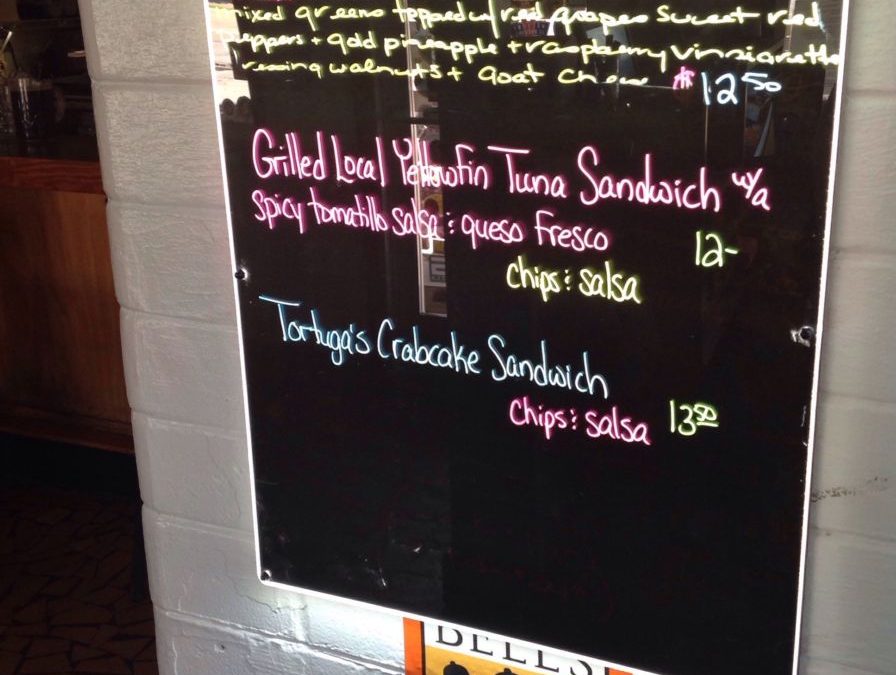 mixed greens topped w/ red grapes sweet red
peppers + gold pineapple + raspberry vinaigrette
dressing walnuts + goat chese 12 50
Grilled Local Yellowfin Tuna Sandwich w/a
spicy tomatillo salsa & queso Fresco
12-
chips & salsa
Tortuga's Crabcake Sandwich
chips & salsa 13 50
BELLS